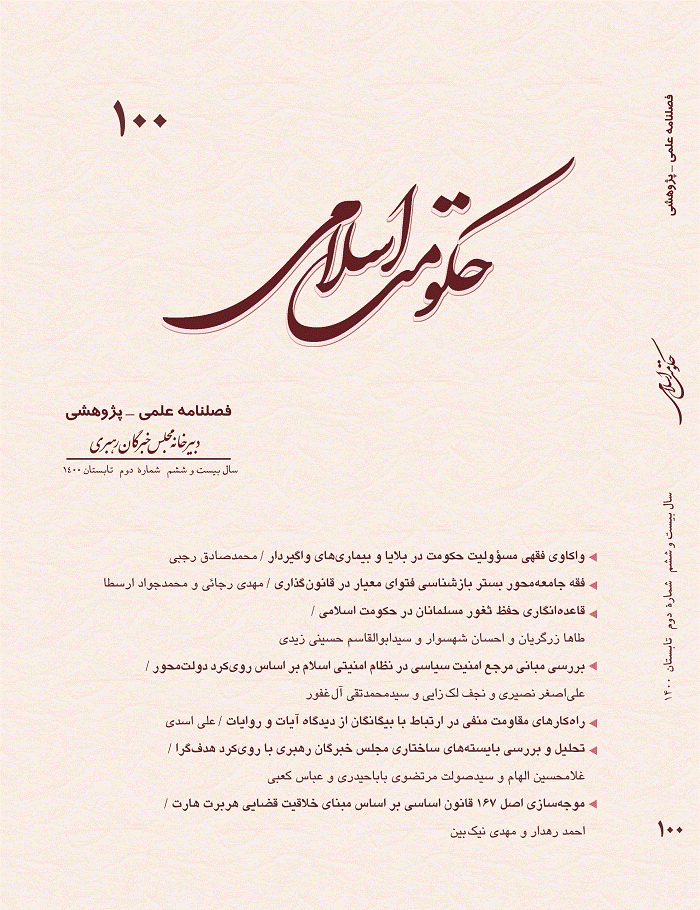 ۱۰۰
حکومت اسلامی
فصلنامه علمی ــ پژوهشی
دبیرخانه مجلس خبرگان رهبری
سال بیست و ششم شمارۀ دوم تابستان ۱۴۰۰
واکاوی فقهی مسؤولیت حکومت در بلایا و بیماری‌های واگیردار / محمدصادق رجبی
فقه جامعه‌محور بستر بازشناسی فتوای معیار در قانون‌گذاری / مهدی رجائی و محمدجواد ارسطا
قاعده‌انگاری حفظ ثغور مسلمانان در حکومت اسلامی /
طاها زرگریان و احسان شهسوار و سیدابوالقاسم حسینی زیدی
بررسی مبانی مرجع امنیت سیاسی در نظام امنیتی اسلام بر اساس روی‌کرد دولت‌محور /
علی‌اصغر نصیری و نجف لک‌زایی و سیدمحمدتقی آل‌غفور
راه‌کارهای مقاومت منفی در ارتباط با بیگانگان از دیدگاه آیات و روایات / علی اسدی
تحلیل و بررسی بایسته‌های ساختاری مجلس خبرگان رهبری با روی‌کرد هدف‌گرا /
غلامحسین الهام و سیدصولت مرتضوی باباحیدری و عباس کعبی
موجه‌سازی اصل ۱۶۷ قانون اساسی بر اساس مبنای خلاقیت قضایی هربرت هارت /
احمد رهدار و مهدی نیک‌بین
فصلنامه علمی ــ پژوهشی
حکومت اسلامی
سال بیست و ششم شمارۀ دوم تابستان ۱۴۰۰
۱۰۰